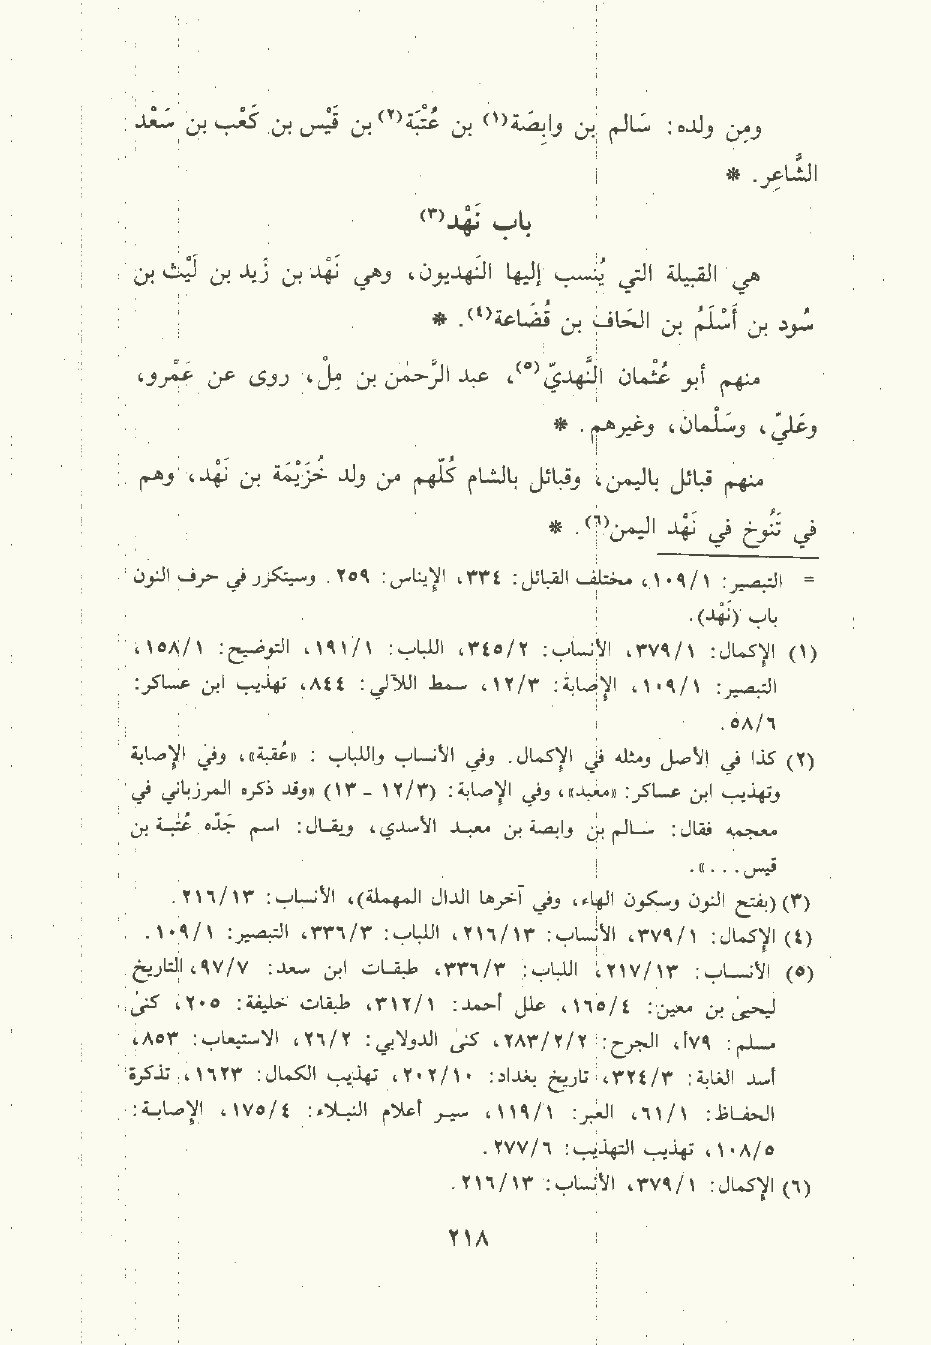 ومِن ولده: سَالم بن وابِصَة(١) بن عُتْبَة(٢) بن قَيْس بن كَعْب بن سَعْد
الشَّاعِر. *
باب نَهْد(٣)
هي القبيلة التي يُنسب إليها النَهديون، وهي نَهْد بن زَيد بن لَيْث بن
سُود بن أَسْلُم بن الحَاف بن قُضَاعة(٤). *
منهم أبو عُثْمان النَّهديّ(٥)، عبد الرَّحمن بن مِلْ، روى عن عَمْرو،
وعَليّ، وسَلْمان، وغيرهم. *
منهم قبائل باليمن، وقبائل بالشام كُلّهم من ولد خُزَيْمَة بن نَهْد، وهم
في تَنُوخ في نَهْد اليمن(٦). *
= التبصير: ١٠٩/١، مختلف القبائل: ٣٣٤، الإيناس: ٢٥٩. وسيتكرر في حرف النون
باب (نَهْد).
(١) الإكمال: ٣٧٩/١، الأنساب: ٣٤٥/٢، اللباب: ١٩١/١، التوضيح: ١٥٨/١،
التبصير: ١٠٩/١، الإصابة: ١٢/٣، سمط اللآلي: ٨٤٤، تهذيب ابن عساكر:
٥٨/٦.
(٢) كذا في الأصل ومثله في الإكمال. وفي الأنساب واللباب: «عُقبة»، وفي الإصابة
وتهذيب ابن عساكر: «معبد»، وفي الإصابة: (١٢/٣ - ١٣) «وقد ذكره المرزباني في
معجمه فقال: سالم بن وابصة بن معبد الأسدي، ويقال: اسم جَدّه عُتْبة بن
قيس...».
(٣) (بفتح النون وسكون الهاء، وفي آخرها الدال المهملة)، الأنساب: ٢١٦/١٣.
(٤) الإكمال: ٣٧٩/١، الأنساب: ٢١٦/١٣، اللباب: ٣٣٦/٣، التبصير: ١٠٩/١.
(٥) الأنساب: ٢١٧/١٣، اللباب: ٣٣٦/٣، طبقات ابن سعد: ٩٧/٧، التاريخ
ليحيىٰ بن معين: ١٦٥/٤، علل أحمد: ٣١٢/١، طبقات خليفة: ٢٠٥، كنىٰ
مسلم: ٧٩أ، الجرح: ٢٨٣/٢/٢، كنىٰ الدولابي: ٢٦/٢، الاستيعاب: ٨٥٣،
أسد الغابة: ٣٢٤/٣، تاريخ بغداد: ٢٠٢/١٠، تهذيب الكمال: ١٦٢٣، تذكرة
الحفاظ: ٦١/١، العبر: ١١٩/١، سير أعلام النبلاء: ١٧٥/٤، الإصابة:
١٠٨/٥، تهذيب التهذيب: ٢٧٧/٦.
(٦) الإكمال: ٣٧٩/١، الأنساب: ٢١٦/١٣.
٢١٨